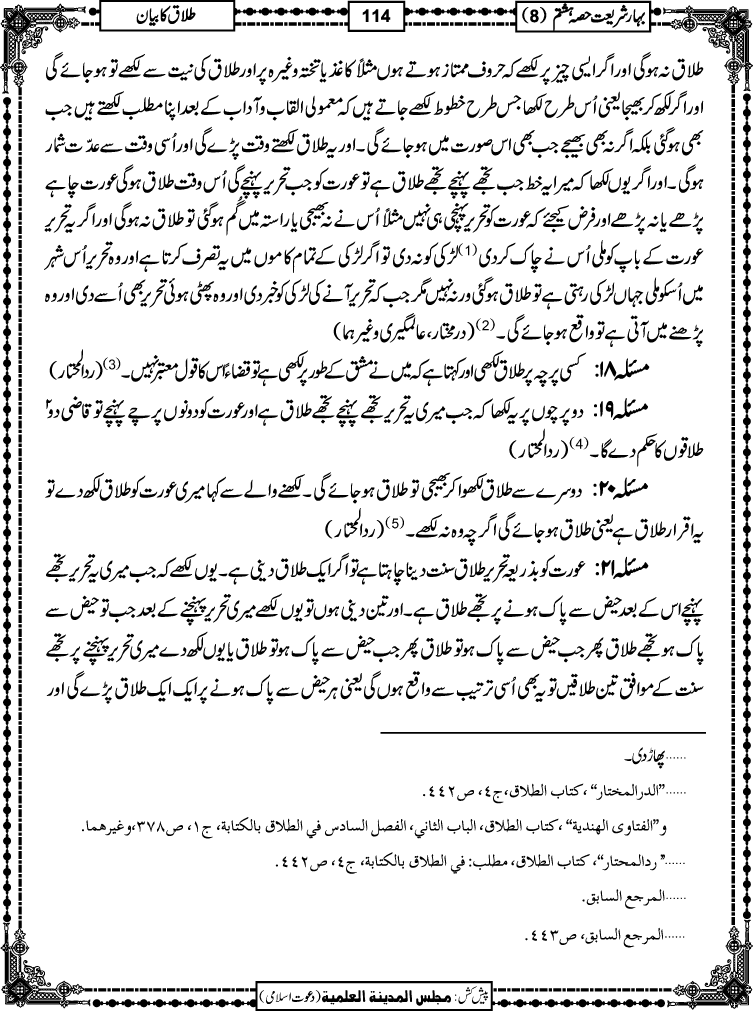 بہارِ شریعت حصہ ہشتم (8)
114
طلاق کا بیان
طلاق نہ ہوگی اور اگر ایسی چیز پر لکھے کہ حروف ممتاز ہوتے ہوں مثلاً کاغذ یا تختہ وغیرہ پر اور طلاق کی نیت سے لکھے تو ہو جائے گی
اور اگر لکھ کر بھیجا یعنی اُس طرح لکھا جس طرح خطوط لکھے جاتے ہیں کہ معمولی القاب و آداب کے بعد اپنا مطلب لکھتے ہیں جب
بھی ہوگئی بلکہ اگر نہ بھی بھیجے جب بھی اس صورت میں ہو جائے گی۔ اور یہ طلاق لکھتے وقت پڑے گی اور اُسی وقت سے عدّت شمار
ہوگی۔ اور اگر یوں لکھا کہ میرا یہ خط جب تجھے پہنچے تجھے طلاق ہے تو عورت کو جب تحریر پہنچے گی اُس وقت طلاق ہوگی عورت چاہے
پڑھے یا نہ پڑھے اور فرض کیجئے کہ عورت کو تحریر پہنچی ہی نہیں مثلاً اُس نے نہ بھیجی یا راستہ میں گُم ہوگئی تو طلاق نہ ہوگی اور اگر یہ تحریر
عورت کے باپ کو ملی اُس نے چاک کردی (1) لڑکی کو نہ دی تو اگر لڑکی کے تمام کاموں میں یہ تصرف کرتا ہے اور وہ تحریر اُس شہر
میں اُسکو ملی جہاں لڑکی رہتی ہے تو طلاق ہوگئی ورنہ نہیں مگر جب کہ تحریر آنے کی لڑکی کو خبر دی اور وہ پھٹی ہوئی تحریر بھی اُسے دی اور وہ
پڑھنے میں آتی ہے تو واقع ہو جائے گی۔ (2) (درمختار، عالمگیری وغیرہما)
مسئلہ ۱۸: کسی پرچہ پر طلاق لکھی اور کہتا ہے کہ میں نے مشق کے طور پر لکھی ہے تو قضاءً اس کا قول معتبر نہیں۔ (3) (ردالمحتار)
مسئلہ ۱۹: دو پرچوں پر یہ لکھا کہ جب میری یہ تحریر تجھے پہنچے تجھے طلاق ہے اور عورت کو دونوں پرچے پہنچے تو قاضی دو۲
طلاقوں کا حکم دے گا۔ (4) (ردالمحتار)
مسئلہ ۲۰: دوسرے سے طلاق لکھوا کر بھیجی تو طلاق ہو جائے گی۔ لکھنے والے سے کہا میری عورت کو طلاق لکھ دے تو
یہ اقرارِ طلاق ہے یعنی طلاق ہو جائے گی اگرچہ وہ نہ لکھے۔ (5) (ردالمحتار)
مسئلہ ۲۱: عورت کو بذریعۂ تحریر طلاق سنت دینا چاہتا ہے تو اگر ایک طلاق دینی ہے۔ یوں لکھے کہ جب میری یہ تحریر تجھے
پہنچے اس کے بعد حیض سے پاک ہونے پر تجھے طلاق ہے۔ اور تین دینی ہوں تو یوں لکھے میری تحریر پہنچنے کے بعد جب تو حیض سے
پاک ہو تجھے طلاق پھر جب حیض سے پاک ہو تو طلاق پھر جب حیض سے پاک ہو تو طلاق یا یوں لکھ دے میری تحریر پہنچنے پر تجھے
سنت کے موافق تین طلاقیں تو یہ بھی اُسی ترتیب سے واقع ہوں گی یعنی ہر حیض سے پاک ہونے پر ایک ایک طلاق پڑے گی اور
......پھاڑ دی۔
......"الدرالمختار"،كتاب الطلاق،ج٤، ص٤٤٢.
و"الفتاوى الهندية"،كتاب الطلاق، الباب الثاني، الفصل السادس في الطلاق بالكتابة، ج١، ص٣٧٨،وغيرهما.
......" ردالمحتار"، كتاب الطلاق، مطلب: في الطلاق بالكتابة، ج٤، ص٤٤٢.
......المرجع السابق.
......المرجع السابق، ص٤٤٣.
پیش کش: مجلس المدينة العلمية (دعوت اسلامی)